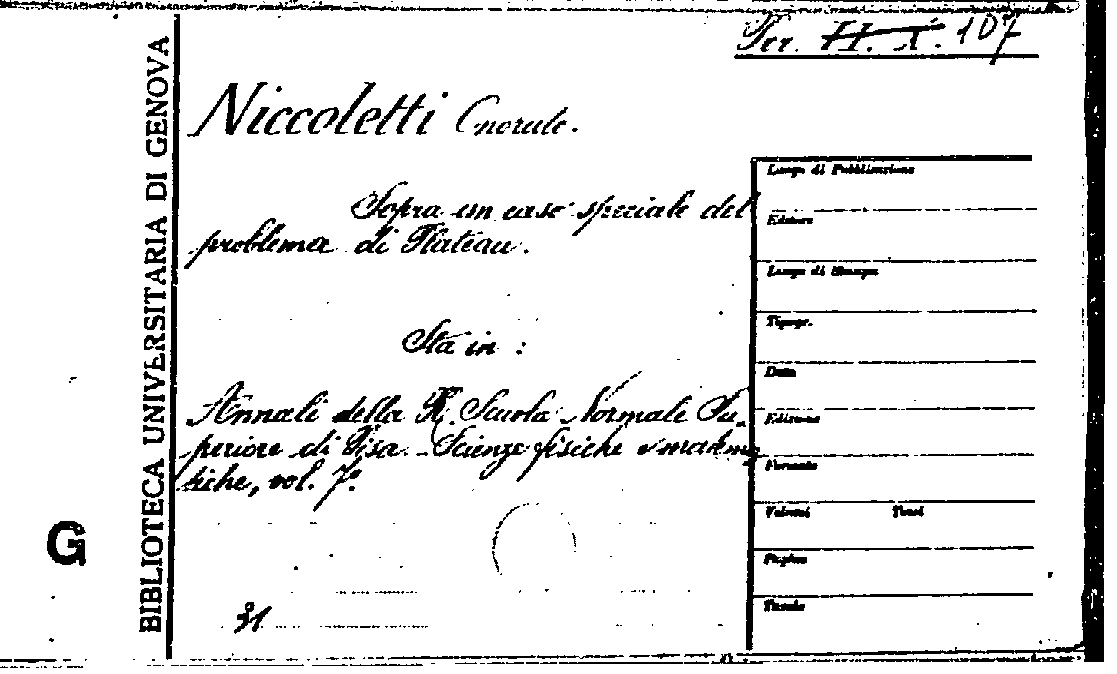 Per. II. X. 107
Niccoletti Onorato.
Sopra un caso speciale del
problema di Plateau.
Sta in :
Annali della R. Scuola Normale Su-
periore di Pisa. - Scienze fisiche e matema
tiche, vol. 7º.
31
BIBLIOTECA UNIVERSITARIA DI GENOVA
G
Luogo di Pubblicazione
Editore
Luogo di Stampa
Tipogr.
Data
Edizione
Formato
Volumi Tomi
Pagine
Tavole